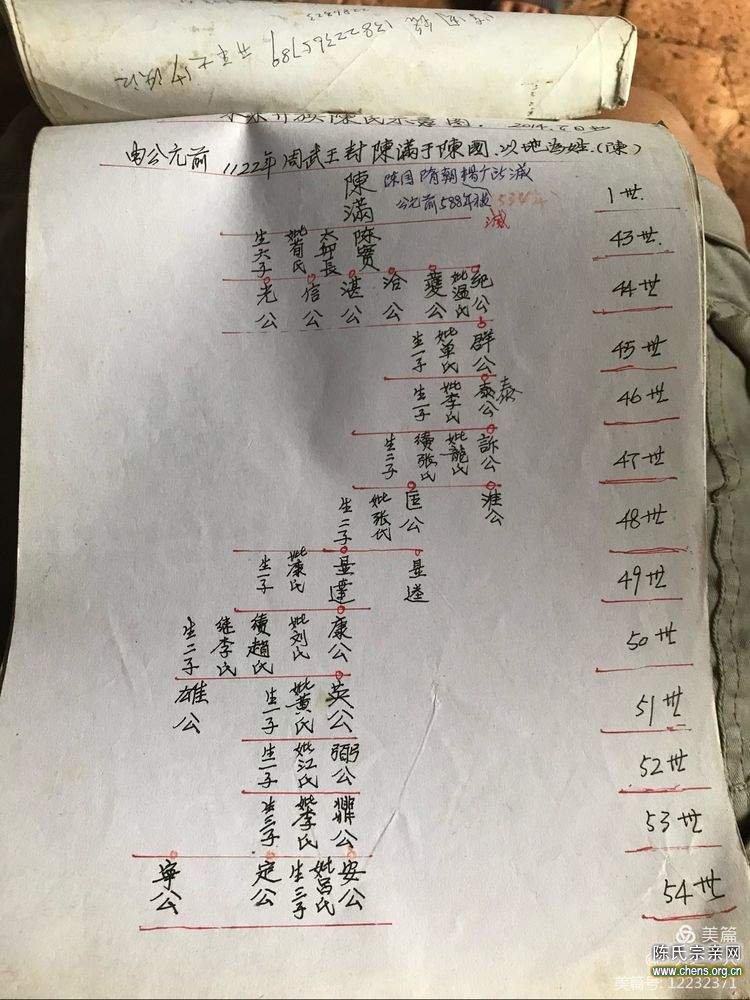 13822365789
陳氏示意图. 2014.
由公元前1122年周武王封陳滿于陳國.以地為姓.(陳)
陳国隋朝楊广所滅
公元前588年被534年
滅
陳滿 1世.
陳實 太邱長 妣荀氏 生六子 43世.
紀公 妣温氏 夔公 洽公 湛公 信公 光公 44世
群公 妣单氏 生一子 45世
泰公 泰 妣李氏 生一子 46世
訴公 妣龍氏 續張氏 生二子 47世
淮公 匡公 妣张氏 生二子 48世
显達 妣康氏 生一子 49世
康公 妣刘氏 續趙氏 继李氏 生二子 50世
英公 妣黄氏 生一子 雄公 51世
弼公 妣江氏 生一子 52世
鼎公 妣李氏 生三子 53世
安公 妣吕氏 生三子 定公 寧公 54世
美篇
陈氏宗亲网
www.chens.org.cn
美篇号: 12232371